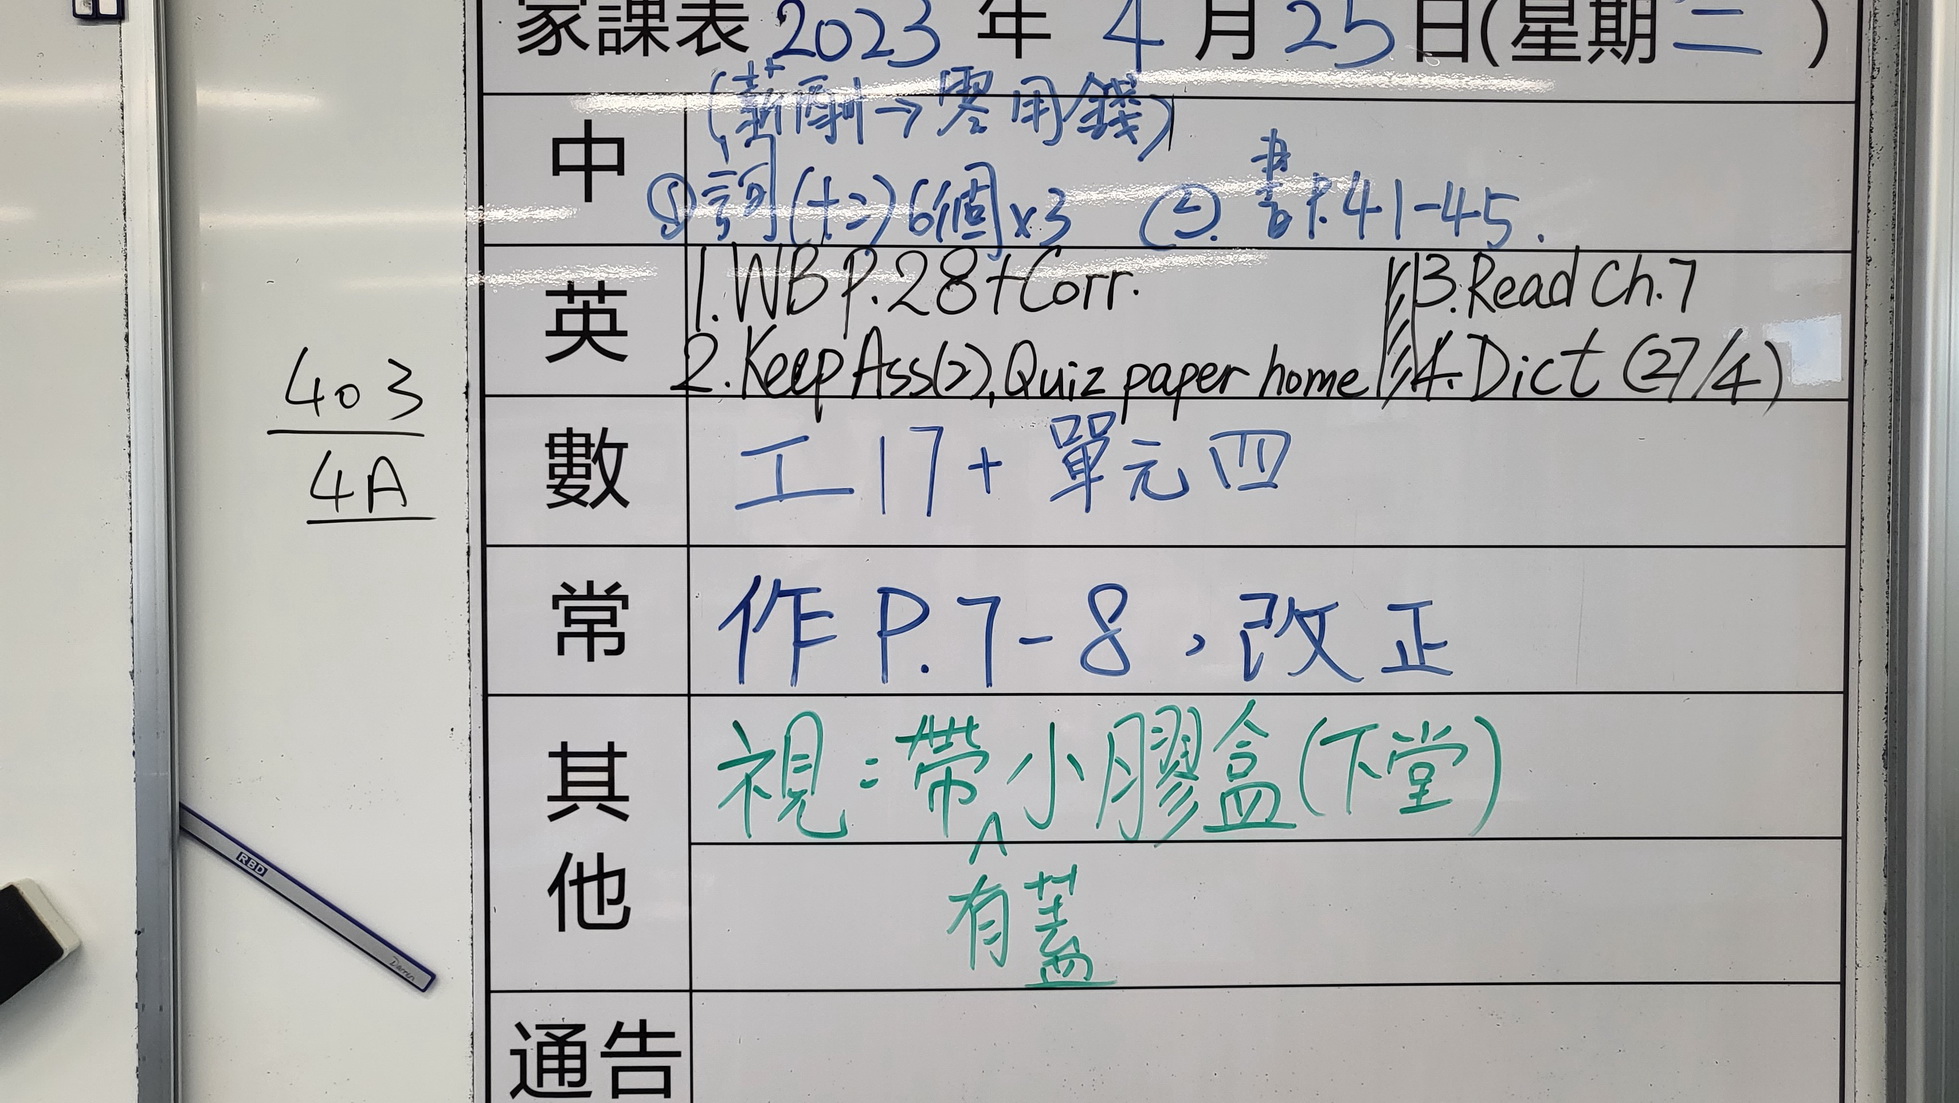 家課表 2023 年 4 月 25 日(星期 二 )
中
(薪酬→零用錢)
① 詞(十二)6個x3 ②. 書P.41-45.
英
1. WB P.28+Corr.
2. Keep Ass(2), Quiz paper home
3. Read Ch.7
4. Dict (27/4)
403
4A
數
工17+單元四
常
作 P.7-8,改正
其他
視:帶小膠盒(下堂)
有蓋
通告
RBD